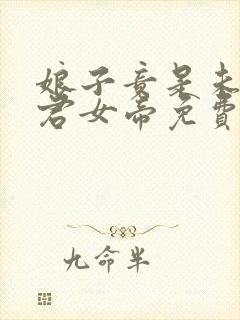 娘子竟是未
君女帝免費
九命半